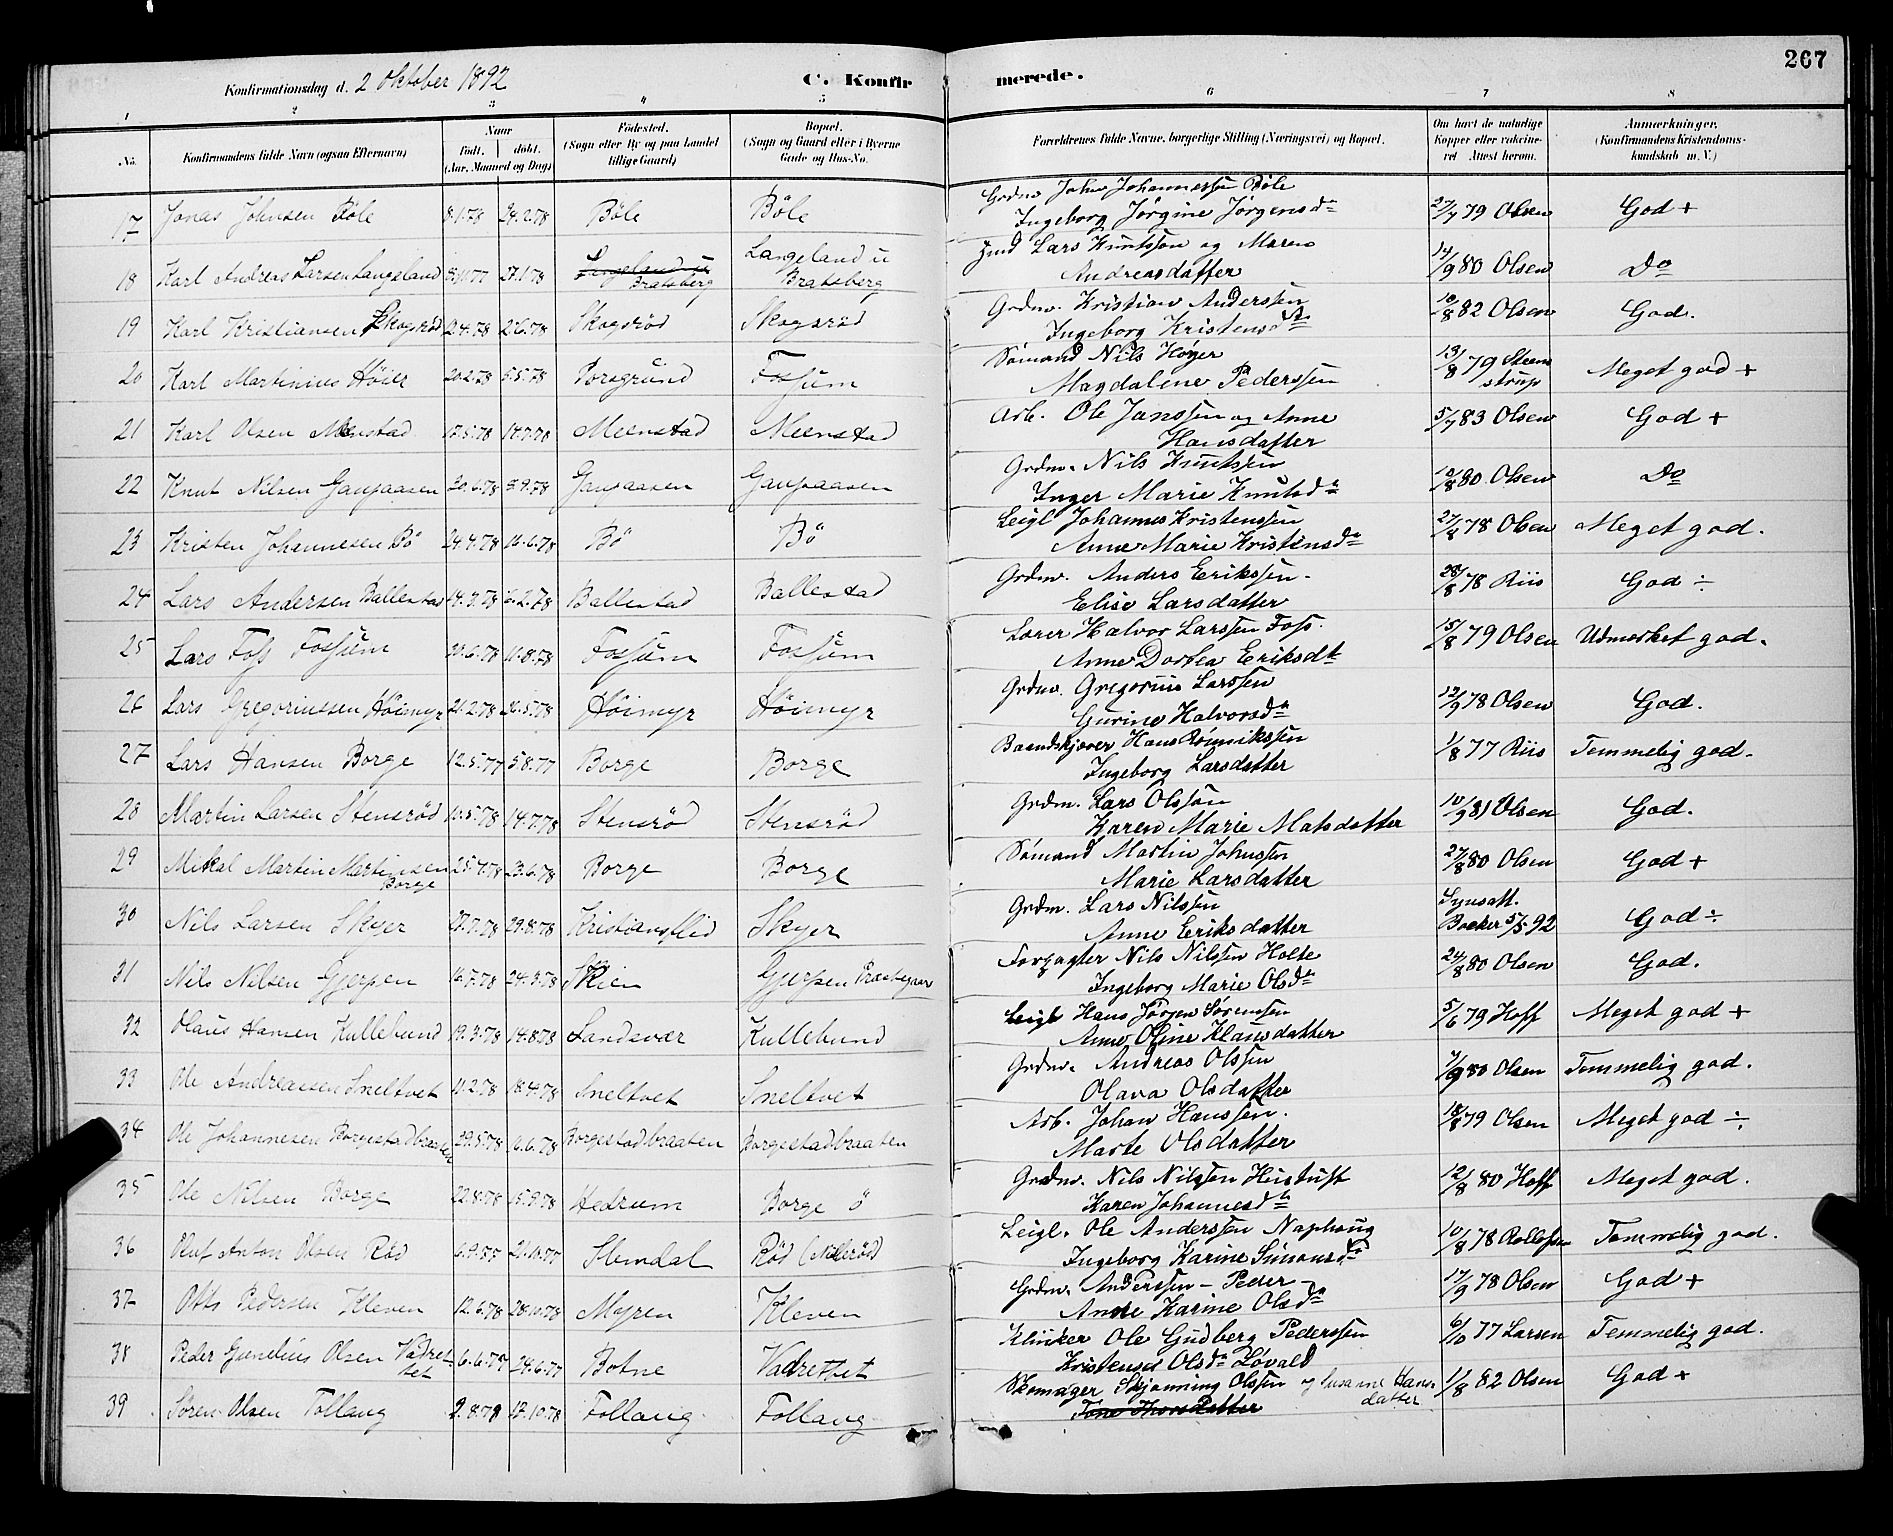 267
Konfirmationsdag d. 2 Oktober 1892 C. Konfirmerede.
1 2 3 4 5 6 7 8
No. Konfirmandens fulde Navn (ogsaa Efternavn) Naar født. døbt. (Aar, Maaned og Dag) Fødested. (Sogn eller By og paa Landet tillige Gaard) Bopæl. (Sogn og Gaard eller i Byerne Gade og Hus-No. Forældrenes fulde Navne, borgerlige Stilling (Næringsvei) og Bopæl. Om havt de naturlige Kopper eller vaccineret Attest herom. Anmærkninger. (Konfirmandens Kristendomskundskab m. V.)
17 Jonas Johnsen Bøle 8.1.78 24.2.78 Bøle Bøle Grdm. John Johannessen Bøle 27/7 79 Olsen God +
Ingeborg Jørgine Jørgensd
18 Karl Andreas Larsen Langeland 27.1.78 Langeland u Bratsberg Langeland u Bratsberg Lars Knutssøn og Maren 14/9 80 Olsen Do
Andreasdatter
19 Karl Kristiansen Skogsrød 2.4.78 2.6.78 Skogsrød Skogsrød Grdm. Kristian Anderssen 10/8 82 Olsen God.
Ingeborg Kristensd
20 Karl Martinius Höier 20.2.78 5.5.78 Porsgrund Fossum Sømand Nils Høyer 13/8 79 Steenstrup Meget god +
Magdalene Pederssen
21 Karl Olsen Menstad 17.5.78 14.7.78 Meenstad Meenstad Arb. Ole Janssen og Anne 5/7 83 Olsen God +
Hansdatter
22 Knut Nilsen Gaupaasen 20.6.78 9.78 Gaupaasen Gaupaasen Grdm. Nils Knutsen 10/8 80 Olsen Do
Inger Marie Knutsd
23 Kristen Johannesen Bö 24.4.78 16.6.78 Bö Bö Leigl Johannes Kristenssen 27/8 78 Olsen Meget god.
Anne Marie Kristensd
24 Lars Andersen Ballestad 14.3.78 6.2.78 Ballestad Ballestad Grdm. Anders Erikssen. 28/8 78 Riis God ÷
Elise Larsdatter
25 Lars Foss Fossum 6.78 11.8.78 Fossum Fossum Lærer Halvor Larssen Foss. 15/8 79 Olsen Udmærket god.
Anne Dortea Eriksdt
26 Lars Gregoriussen Höimyr 21.2.78 26.5.78 Höimyr Höimyr Grdm. Gregorius Larssen 12/9 78 Olsen God.
Gurine Halvorsd
27 Lars Hansen Borge 12.5.77 5.8.77 Borge Borge Baandskjærer Hans 1/8 77 Riis Temmelig god.
Ingeborg Larsdatter
28 Martin Larsen Stensrød 10.5.78 14.7.78 Stensrød Stensrød Grdm. Lars Olssøn 10/9 81 Olsen God.
Karen Marie Matsdatter
29 Mikal Martin Martinsen Borge 25.4.78 23.6.78 Borge Borge Sømand Martin Johnssen 27/8 80 Olsen God +
Marie Larsdatter
30 Nils Larsen Skyer 27.7.78 29.8.78 Skyer Grdm. Lars Nilssen Synsatt. Backer 5/5 92 God ÷
Anne Eriksdatter
31 Nils Nilsen Gjerpen 16.7.78 24.3.78 Skien Gjerpen Præstegaar Forpagter Nils Nilssen Holte 24/8 80 Olsen God.
Ingeborg Marie Olsd
32 Olaus Hansen Kullebund 19.3.78 14.8.78 Sandsvær Kullebund Leigl Hans Jørgen Sørenssen 5/6 79 Hoff Meget god +
Anne Oline Klausdatter
33 Ole Andreassen Sneltvet 11.2.78 18.4.78 Sneltvet Sneltvet Grdm. Andreas Olssen 7/9 80 Olsen Temmelig god.
Olava Olsdatter
34 Ole Johannesen Borgestadbraaten 29.5.78 6.6.78 Borgestadbraaten Borgestadbraaten Arb. Johan Hanssen. 18/8 79 Olsen Meget god ÷
Marte Olsdatter
35 Ole Nilsen Borge 22.8.78 15.9.78 Hedrum Borge ö Grdm. Nils Nilssen 12/8 80 Hoff Meget god.
Karen Johannesd
36 Oluf Anton Olsen Rød 6.9.77 21.10.77 Slemdal Rød (Nilsrød) Leigl. Ole Anderssen Naphaug 10/8 78 Rollefsen Temmelig god.
Ingeborg Karine Simonsd
37 Otto Pedersen Kleven 12.6.78 28.10.78 Myren Kleven Grdm. Anderssen - Peder - 17/9 78 Olsen God +
Anne Karine Olsd
38 Peder Gunelius Olsen Vadrettet 6.6.77 24.6.77 Botne Vadrettet Klinker Ole Gudberg Pederssen 6/10 77 Larsen Temmelig god.
Kristense Olsd Løvald
39 Søren Olsen Follaug 2.8.78 27.10.78 Follaug Follaug Skomager Skjønning Olssen og Susanne Hansdatter 1/8 82 Olsen God +
Tone Thorsdatter